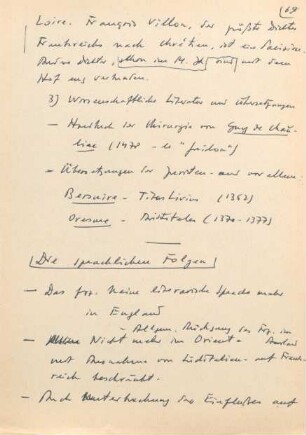 69
Loire. François Villon, der größte Dichter
Frankreichs nach Chrétien, ist ein Pariser.
Andere Dichter schon im M. A. sind mit dem
Hof eng verbunden.
3) Wissenschaftliche Literatur und Übersetzungen
– Handbuch der Chirurgie von Guy de Chau-
liac (1478 – le "guidon")
– Übersetzungen der Juristen – und vor allem:
Bersuire – Titus Livius (1352)
Oresme – Aristoteles (1370–1377)
Die sprachlichen Folgen
– Das frz. keine literarische Sprache mehr
in England
– Allgem. Rückgang des Frz. im
– Nicht mehr im Orient – Ausland
mit Ausnahme von – auf Frank-
reich beschränkt.
– Auch Unterbrechung des Einflußes auf